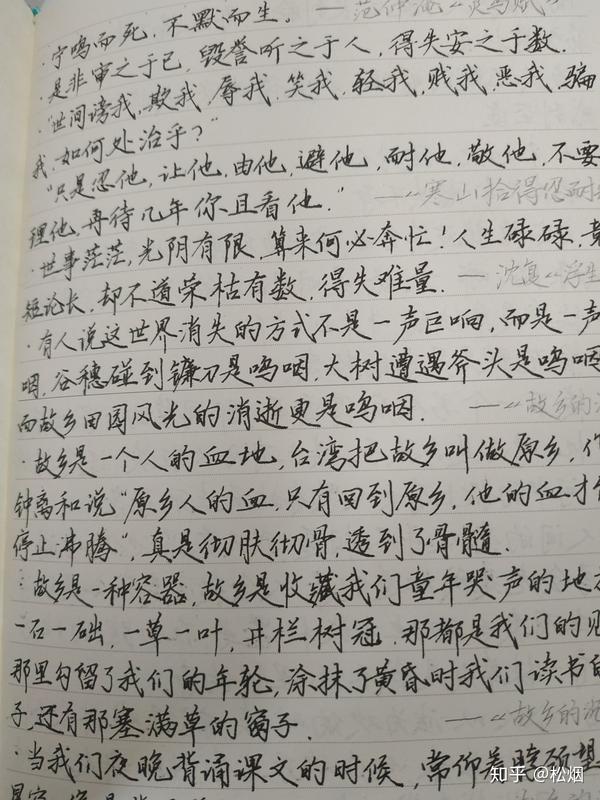 ——范仲淹《灵乌赋》
·宁鸣而死，不默而生。
·是非审之于己，毁誉听之于人，得失安之于数．
·“世间谤我，欺我，辱我，笑我，轻我，贱我，恶我，骗
我，如何处治乎？”
“只是忍他，让他，由他，避他，耐他，敬他，不要
理他，再待几年你且看他．” ——《寒山拾得忍耐
·世事茫茫，光阴有限，算来何必奔忙！人生碌碌，竞
短论长，却不道荣枯有数，得失难量． ——沈复《浮生
·有人说这世界消失的方式不是一声巨响，而是一声
咽，谷穗碰到镰刀是呜咽，大树遭遇斧头是呜咽
而故乡田园风光的消逝更是呜咽． ——《故乡的
·故乡是一个人的血地，台湾把故乡叫做原乡，作
钟离和说“原乡人的血，只有回到原乡，他的血才
停止沸腾”，真是彻肤彻骨，透到了骨髓．
·故乡是一种容器，故乡是收藏我们童年哭声的地方
一石一础，一草一叶，井栏树冠．那都是我们的
那里勾留了我们的年轮，涂抹了黄昏时我们读书的
子，还有那塞满草的窗子． ——《故乡的
·当我们夜晚背诵课文的时候，常仰着脖颈望
知乎 @松烟